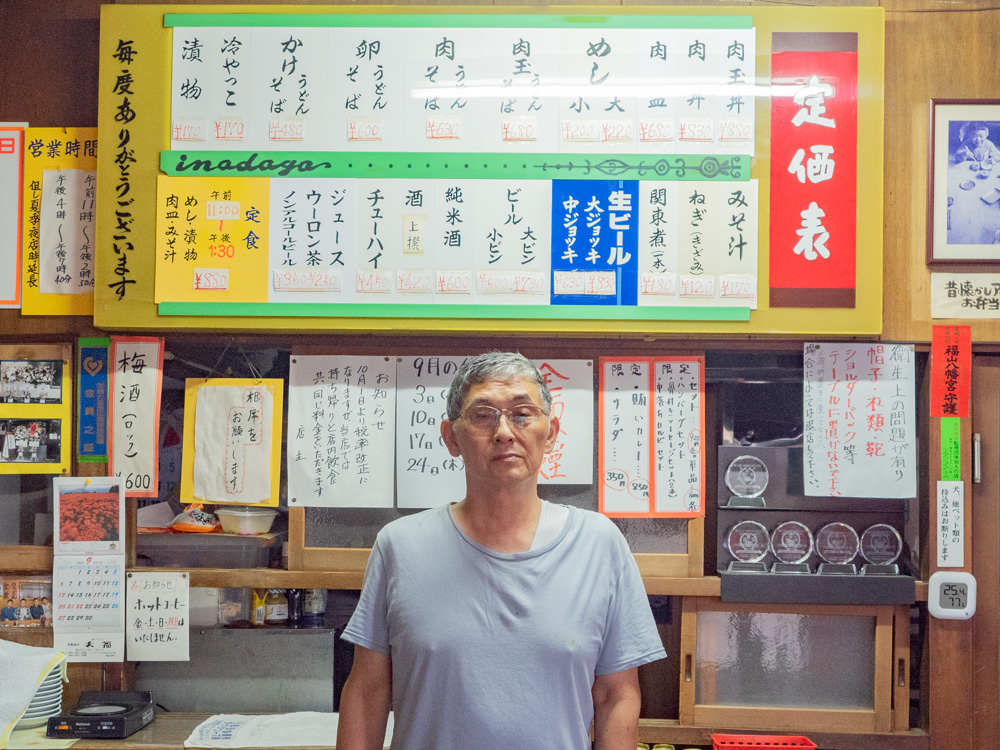 毎度ありがとうございます
定価表
肉玉丼
¥880
肉丼
¥830
肉皿
¥680
めし
大
¥220
小
¥200
肉玉
うどん
そば
¥680
肉
うどん
そば
¥630
卵
うどん
そば
¥600
かけ
うどん
そば
¥480
冷やっこ
¥170
漬物
¥170
inadaga
みそ汁
¥170
ねぎ(きざみ)
¥120
関東煮(一本)
¥180
生ビール
大ジョッキ
¥930
中ジョッキ
¥630
ビール
大ビン
¥730
小ビン
¥500
純米酒
¥600
酒
上撰
¥420
チューハイ
¥450
ジュース
ウーロン茶
¥250
ノンアルコールビール
¥350
定食
午前
11:00
〜
午後
1:30
めし・漬物
肉皿・みそ汁
¥880
日
営業時間
午前11時〜午後2時
午後4時〜午後7時
但し夏季夜店時延長
会員之証
梅酒(ロック)
¥600
相席を
お願いします
お知らせ
10月1日より税率改正に
なりますが当店では
持ち帰りと店内飲食
共同じ料金をいただきます
店主
9月の
3日(
10日(
17日(
24日(木)
煙
限定
賄いカレー
850円
サラダ
350円
限定
セット
・ハンバーグセット
衛生上の問題が有り
帽子・衣類・靴
ショルダーバック等
テーブルに置かないで下さい
昔懐かしア
お弁当
福山八幡宮守護
犬、他ペット類の
持込みはお断りします
25.4
77
9
1 2 3 4 5
6 7 8 9 10 11 12
13 14 15 16 17 18 19
20 21 22 23 24 25 26
27 28 29 30
お知らせ
ホットコーヒー
金・土・日・祝は
いたしません。
National